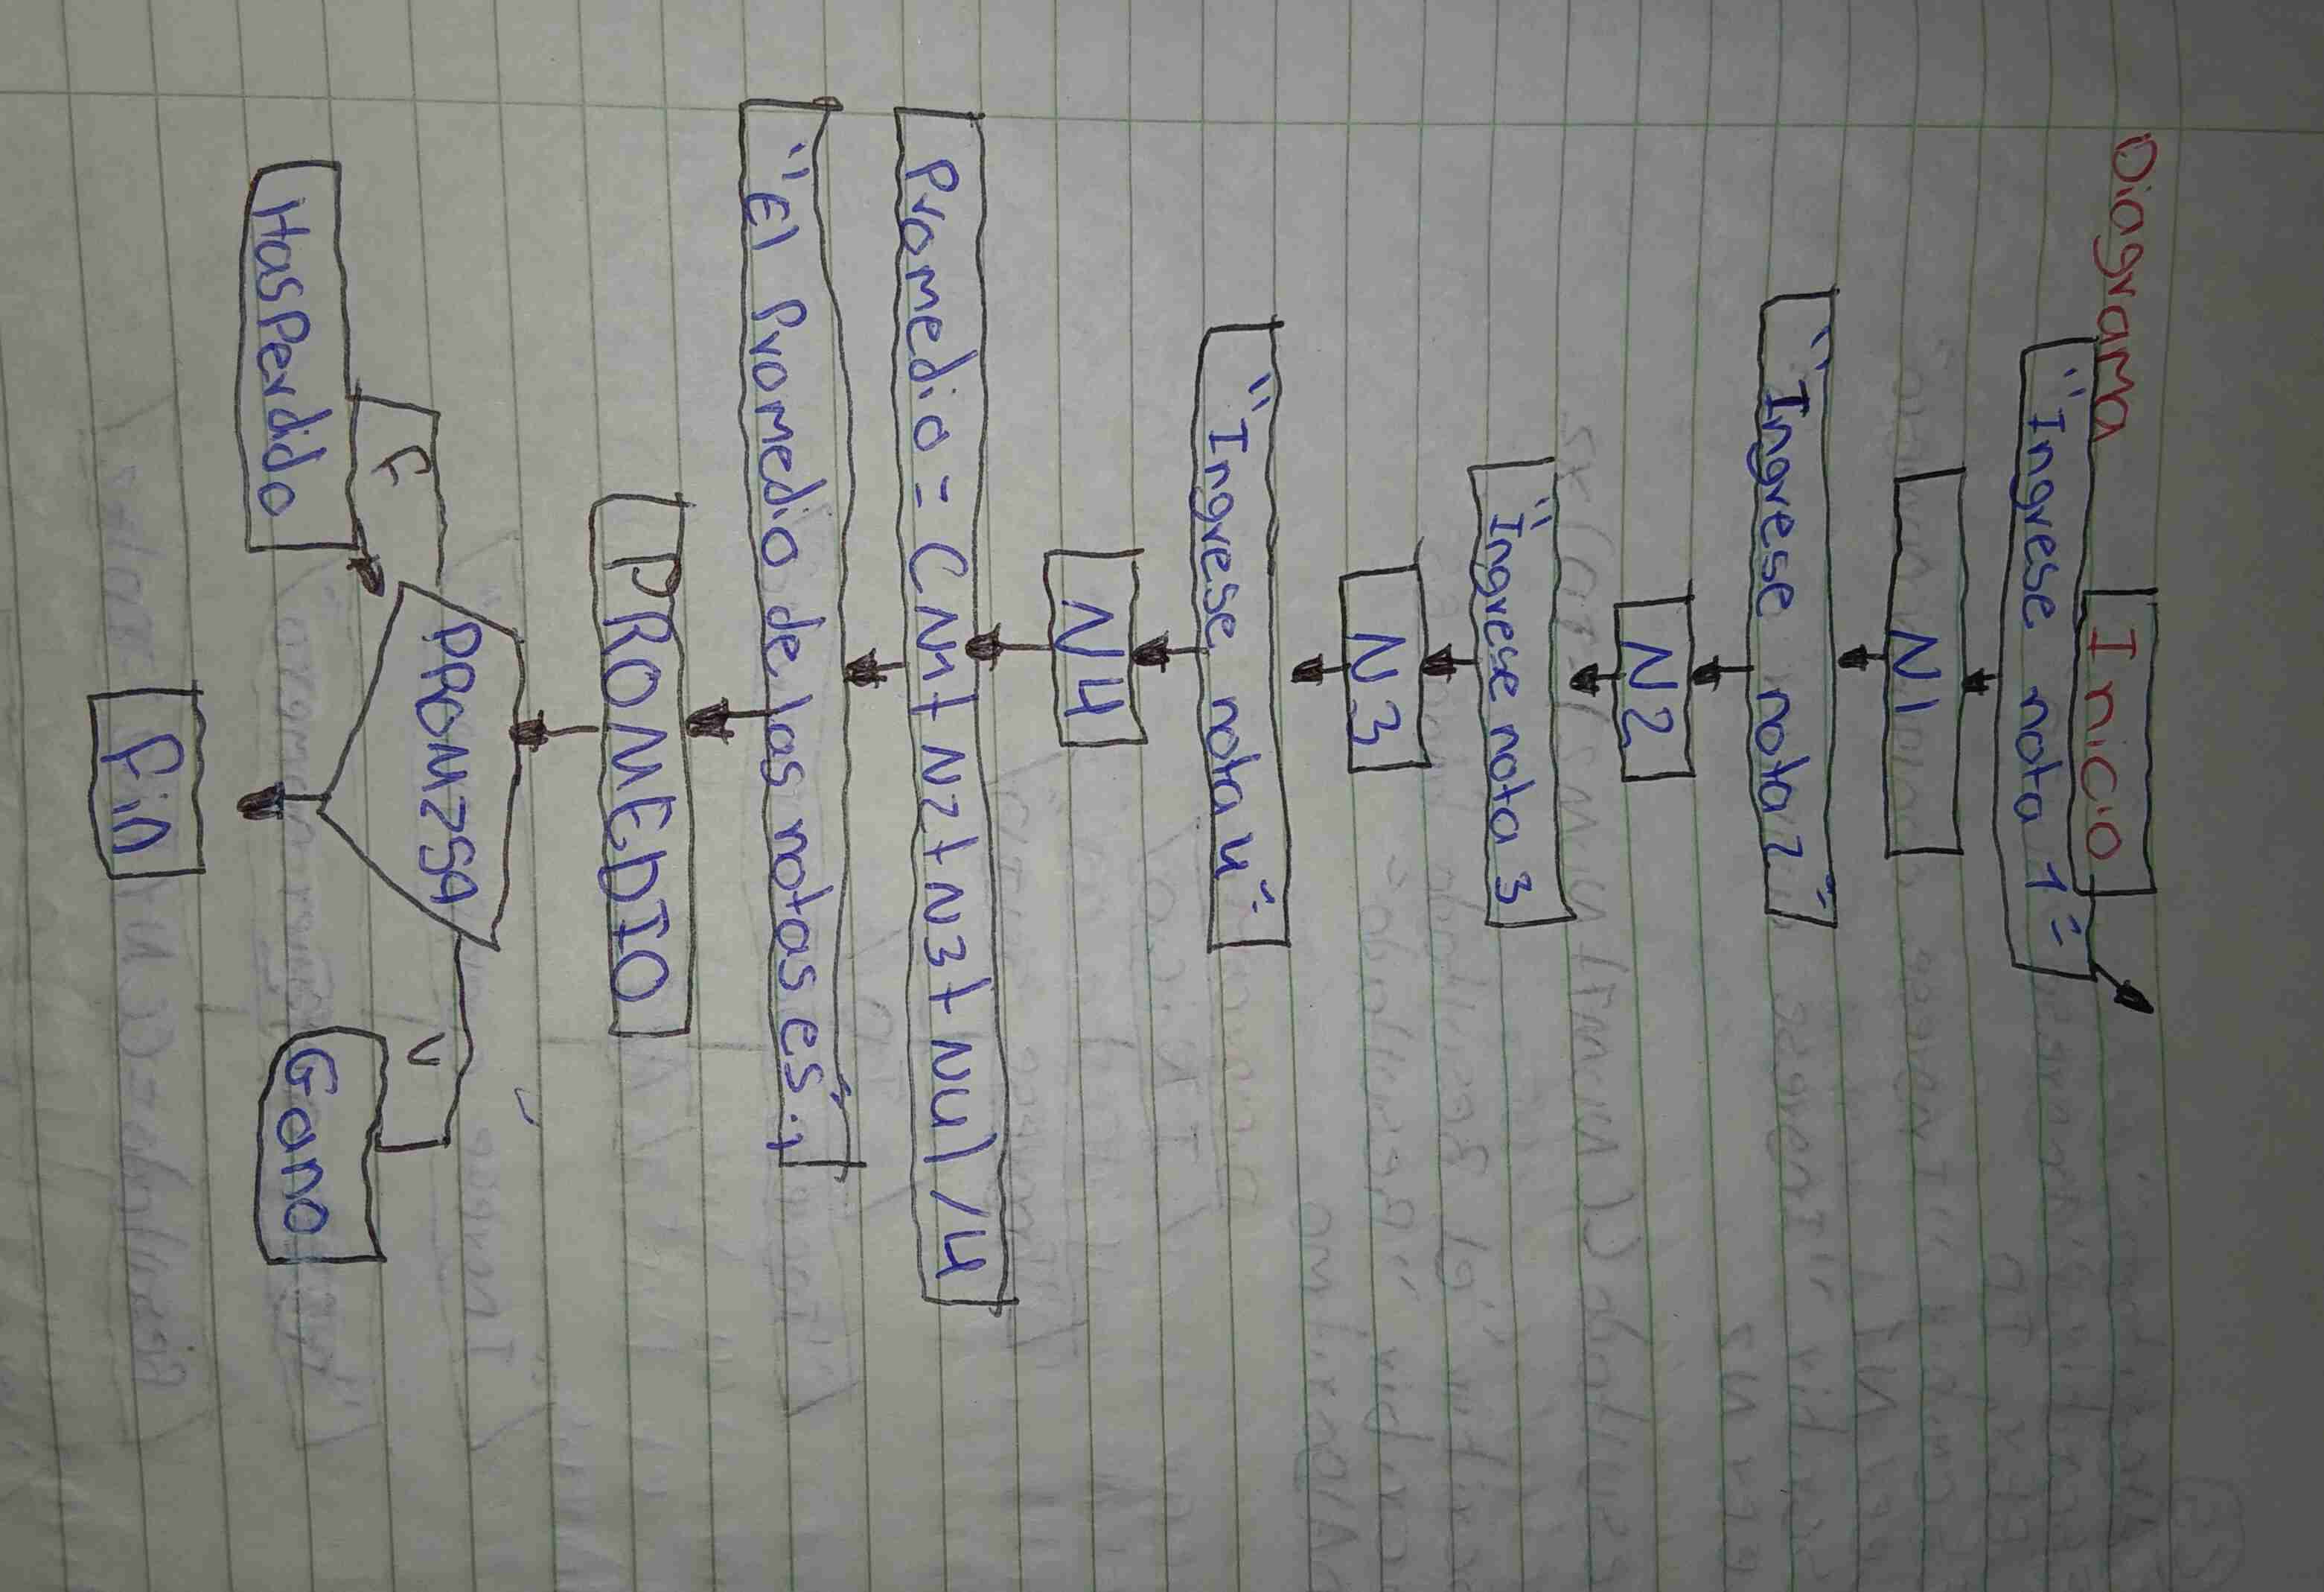 Diagrama
Inicio
"Ingrese nota 1"
N1
"Ingrese nota 2"
N2
"Ingrese nota 3
N3
"Ingrese nota 4"
N4
Promedio = (N1+ N2+ N3+ N4) /4
"El Promedio de las notas es:",
PROMEDIO
F
V
Has Perdido
Gano
Fin